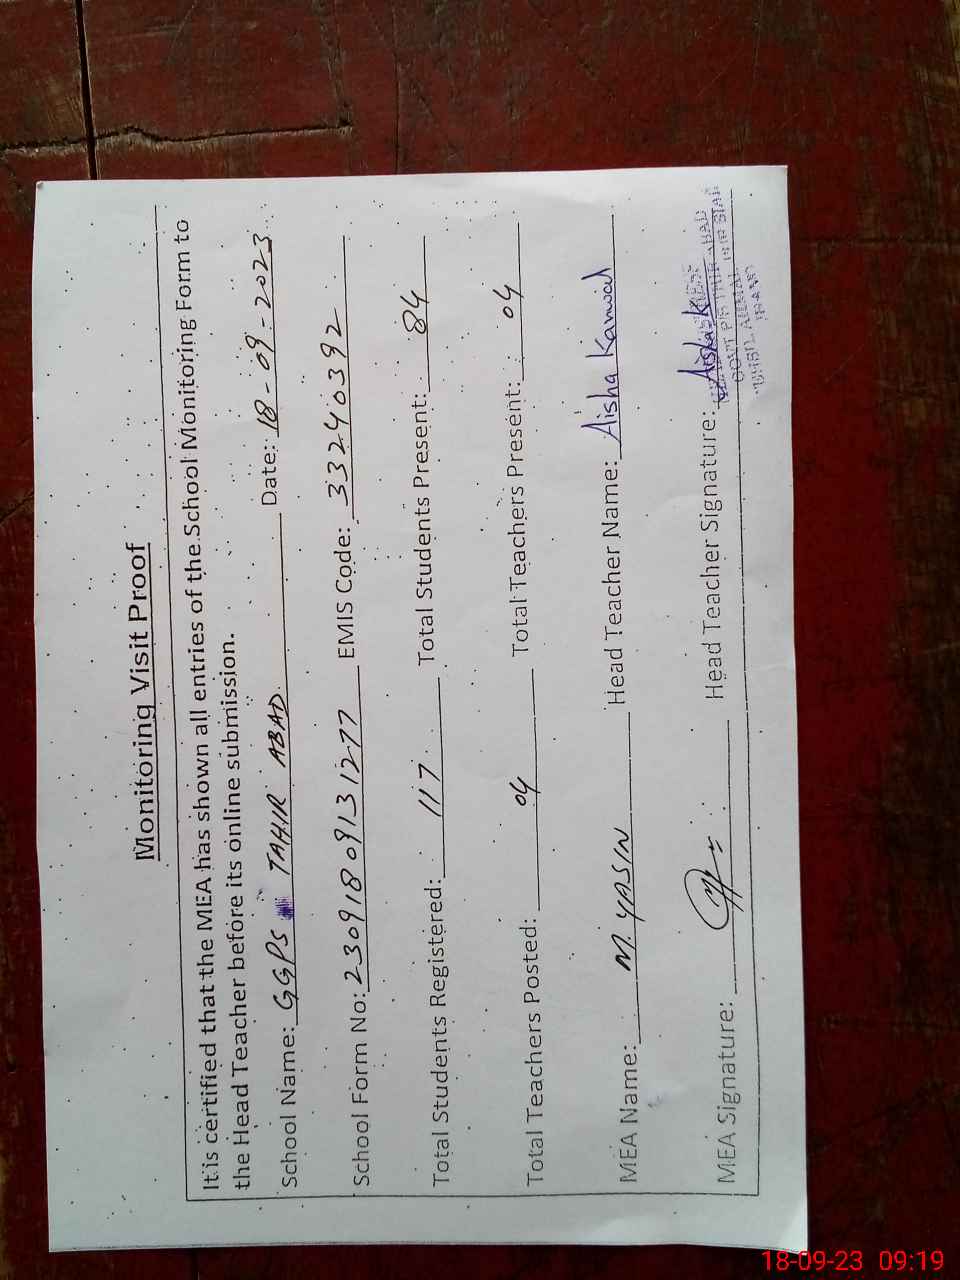 Monitoring Visit Proof
It is certified that the MEA has shown all entries of the School Monitoring Form to
the Head Teacher before its online submission.
School Name: GGPS TAHIR ABAD Date: 18-09-2023
School Form No: 23091809131277 EMIS Code: 33240392
Total Students Registered: 117 Total Students Present: 84
Total Teachers Posted: 04 Total Teachers Present: 04
MEA Name: M. YASIN Head Teacher Name: Aisha Kanwal
MEA Signature: Head Teacher Signature: Aisha K
18-09-23 09:19